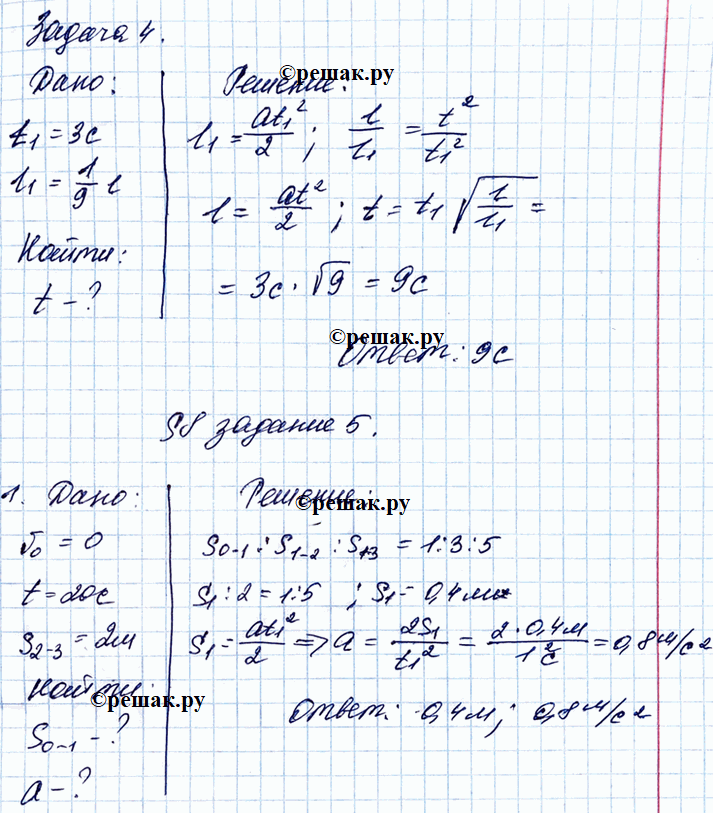 Задача 4.
Дано:
t₁ = 3с
l₁ = 1/9 l
Найти:
t - ?
©решак.ру
Решение:
l₁ = at₁²/2 ; l/l₁ = t²/t₁²
l = at²/2 ; t = t₁ √(l/l₁) =
= 3с · √9 = 9с
©решак.ру
Ответ: 9с
§8 задание 5.
1. Дано:
v₀ = 0
t = 20с
S₂₋₃ = 2м
Найти:
©решак.ру
S₀₋₁ - ?
a - ?
Решение:
©решак.ру
S₀₋₁ : S₁₋₂ : S₁₃ = 1:3:5
S₁ : 2 = 1:5 ; S₁ = 0,4м
S₁ = at₁²/2 => a = 2S₁/t₁² = 2·0,4м/1²с = 0,8м/с²
Ответ: 0,4м; 0,8м/с²